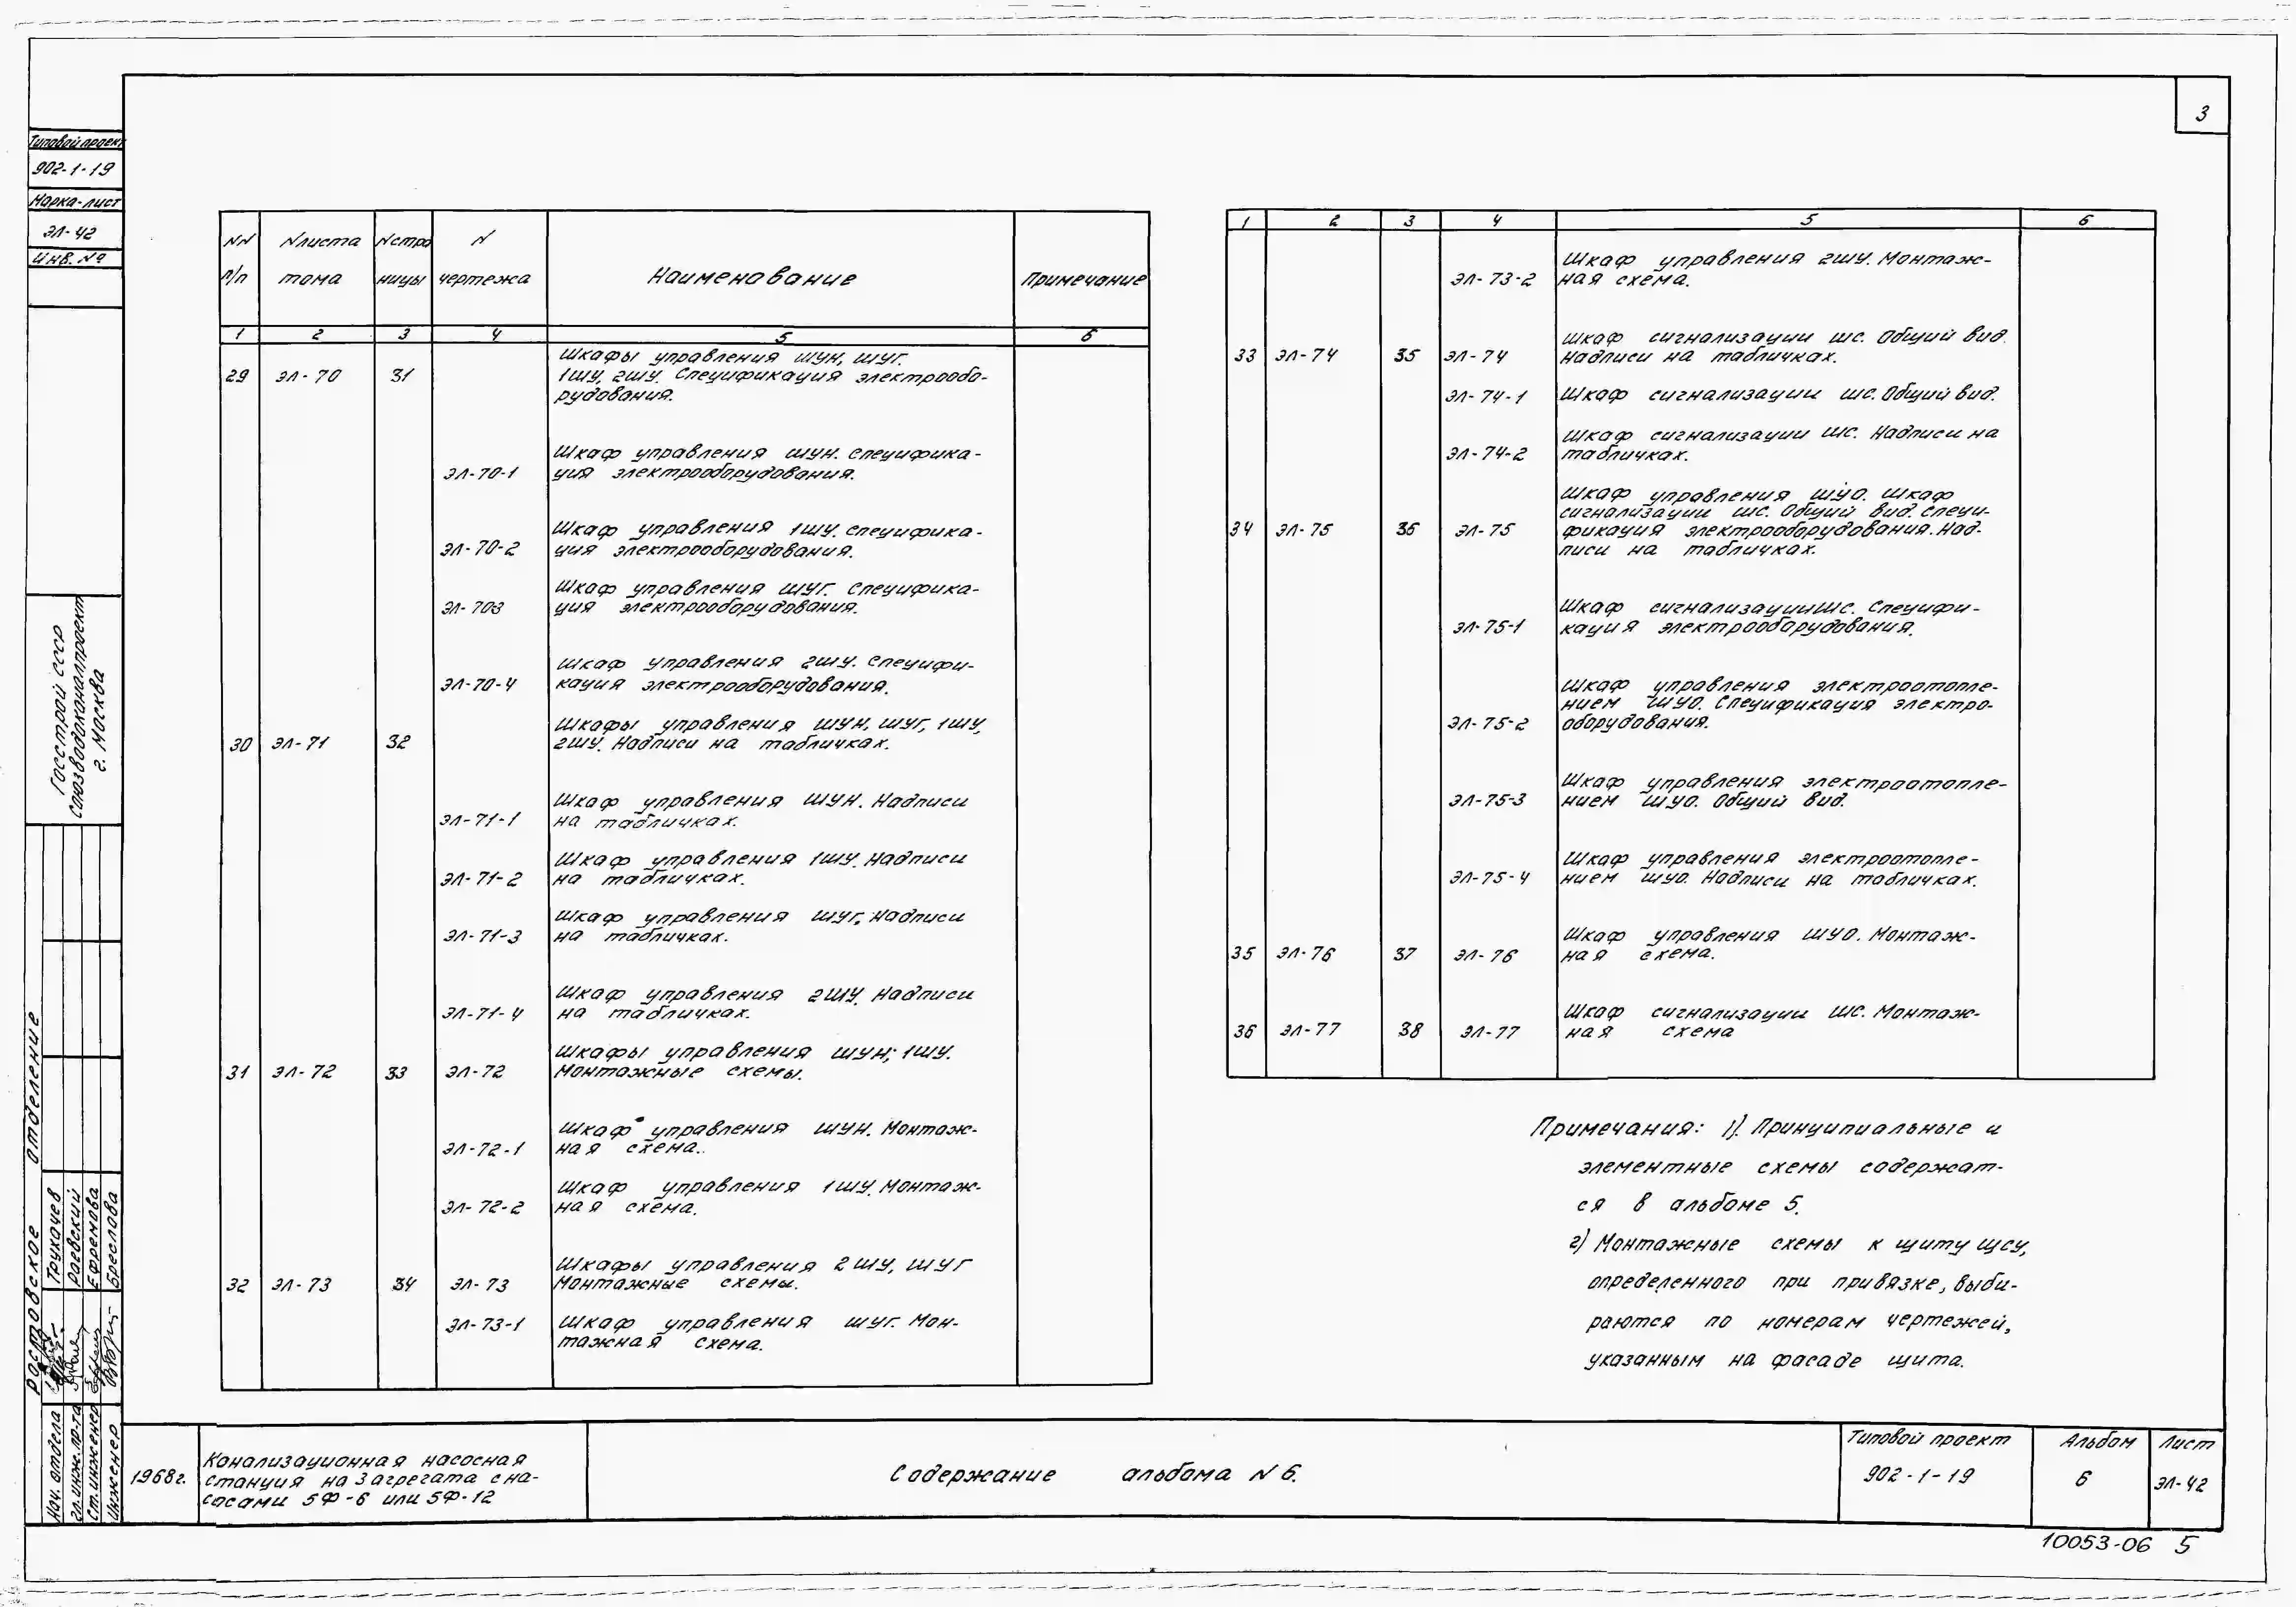 3
Типовой проект
902-1-19
Марка-лист
ЭЛ-42
Инв. №
Госстрой СССР
Союзводоканалпроект
г. Москва
Ростовское отделение
Нач. отдела Трукачев
Гл. инж. пр-та Раевский
Ст. инженер Ефремова
Инженер Бреслава
NN п/п
N листа тома
N страницы
N чертежа
Наименование
Примечание
1 2 3 4 5 6
Шкафы управления ШУН, ШУГ.
29 ЭЛ-70 31 1ШУ, 2ШУ. Спецификация электрообо-
рудования.
Шкаф управления ШУН. Специфика-
ЭЛ-70-1 ция электрооборудования.
Шкаф управления 1ШУ. Специфика-
ЭЛ-70-2 ция электрооборудования.
Шкаф управления ШУГ. Специфика-
ЭЛ-703 ция электрооборудования.
Шкаф управления 2ШУ. Специфи-
ЭЛ-70-4 кация электрооборудования.
Шкафы управления ШУН, ШУГ, 1ШУ,
30 ЭЛ-71 32 2ШУ. Надписи на табличках.
Шкаф управления ШУН. Надписи
ЭЛ-71-1 на табличках.
Шкаф управления 1ШУ. Надписи
ЭЛ-71-2 на табличках.
Шкаф управления ШУГ. Надписи
ЭЛ-71-3 на табличках.
Шкаф управления 2ШУ. Надписи
ЭЛ-71-4 на табличках.
Шкафы управления ШУН; 1ШУ.
31 ЭЛ-72 33 ЭЛ-72 Монтажные схемы.
Шкаф управления ШУН. Монтаж-
ЭЛ-72-1 ная схема.
Шкаф управления 1ШУ. Монтаж-
ЭЛ-72-2 ная схема.
Шкафы управления 2ШУ, ШУГ
32 ЭЛ-73 34 ЭЛ-73 Монтажные схемы.
ЭЛ-73-1 Шкаф управления ШУГ. Мон-
тажная схема.
1 2 3 4 5 6
Шкаф управления 2ШУ. Монтаж-
ЭЛ-73-2 ная схема.
Шкаф сигнализации ШС. Общий вид.
33 ЭЛ-74 35 ЭЛ-74 Надписи на табличках.
ЭЛ-74-1 Шкаф сигнализации ШС. Общий вид.
Шкаф сигнализации ШС. Надписи на
ЭЛ-74-2 табличках.
Шкаф управления ШУО. Шкаф
сигнализации ШС. Общий вид. Специ-
34 ЭЛ-75 36 ЭЛ-75 фикация электрооборудования. Над-
писи на табличках.
Шкаф сигнализации ШС. Специфи-
ЭЛ-75-1 кация электрооборудования.
Шкаф управления электроотопле-
нием ШУО. Спецификация электро-
ЭЛ-75-2 оборудования.
Шкаф управления электроотопле-
ЭЛ-75-3 нием ШУО. Общий вид.
Шкаф управления электроотопле-
ЭЛ-75-4 нием ШУО. Надписи на табличках.
Шкаф управления ШУО. Монтаж-
35 ЭЛ-76 37 ЭЛ-76 ная схема.
Шкаф сигнализации ШС. Монтаж-
36 ЭЛ-77 38 ЭЛ-77 ная схема
Примечания: 1). Принципиальные и
элементные схемы содержат-
ся в альбоме 5.
2) Монтажные схемы к щиту ЩСУ,
определенного при привязке, выби-
раются по номерам чертежей,
указанным на фасаде щита.
1968г.
Канализационная насосная
станция на 3 агрегата с на-
сосами 5Ф-6 или 5Ф-12
Содержание альбома N 6.
Типовой проект
902-1-19
Альбом
6
Лист
ЭЛ-42
10053-06 5